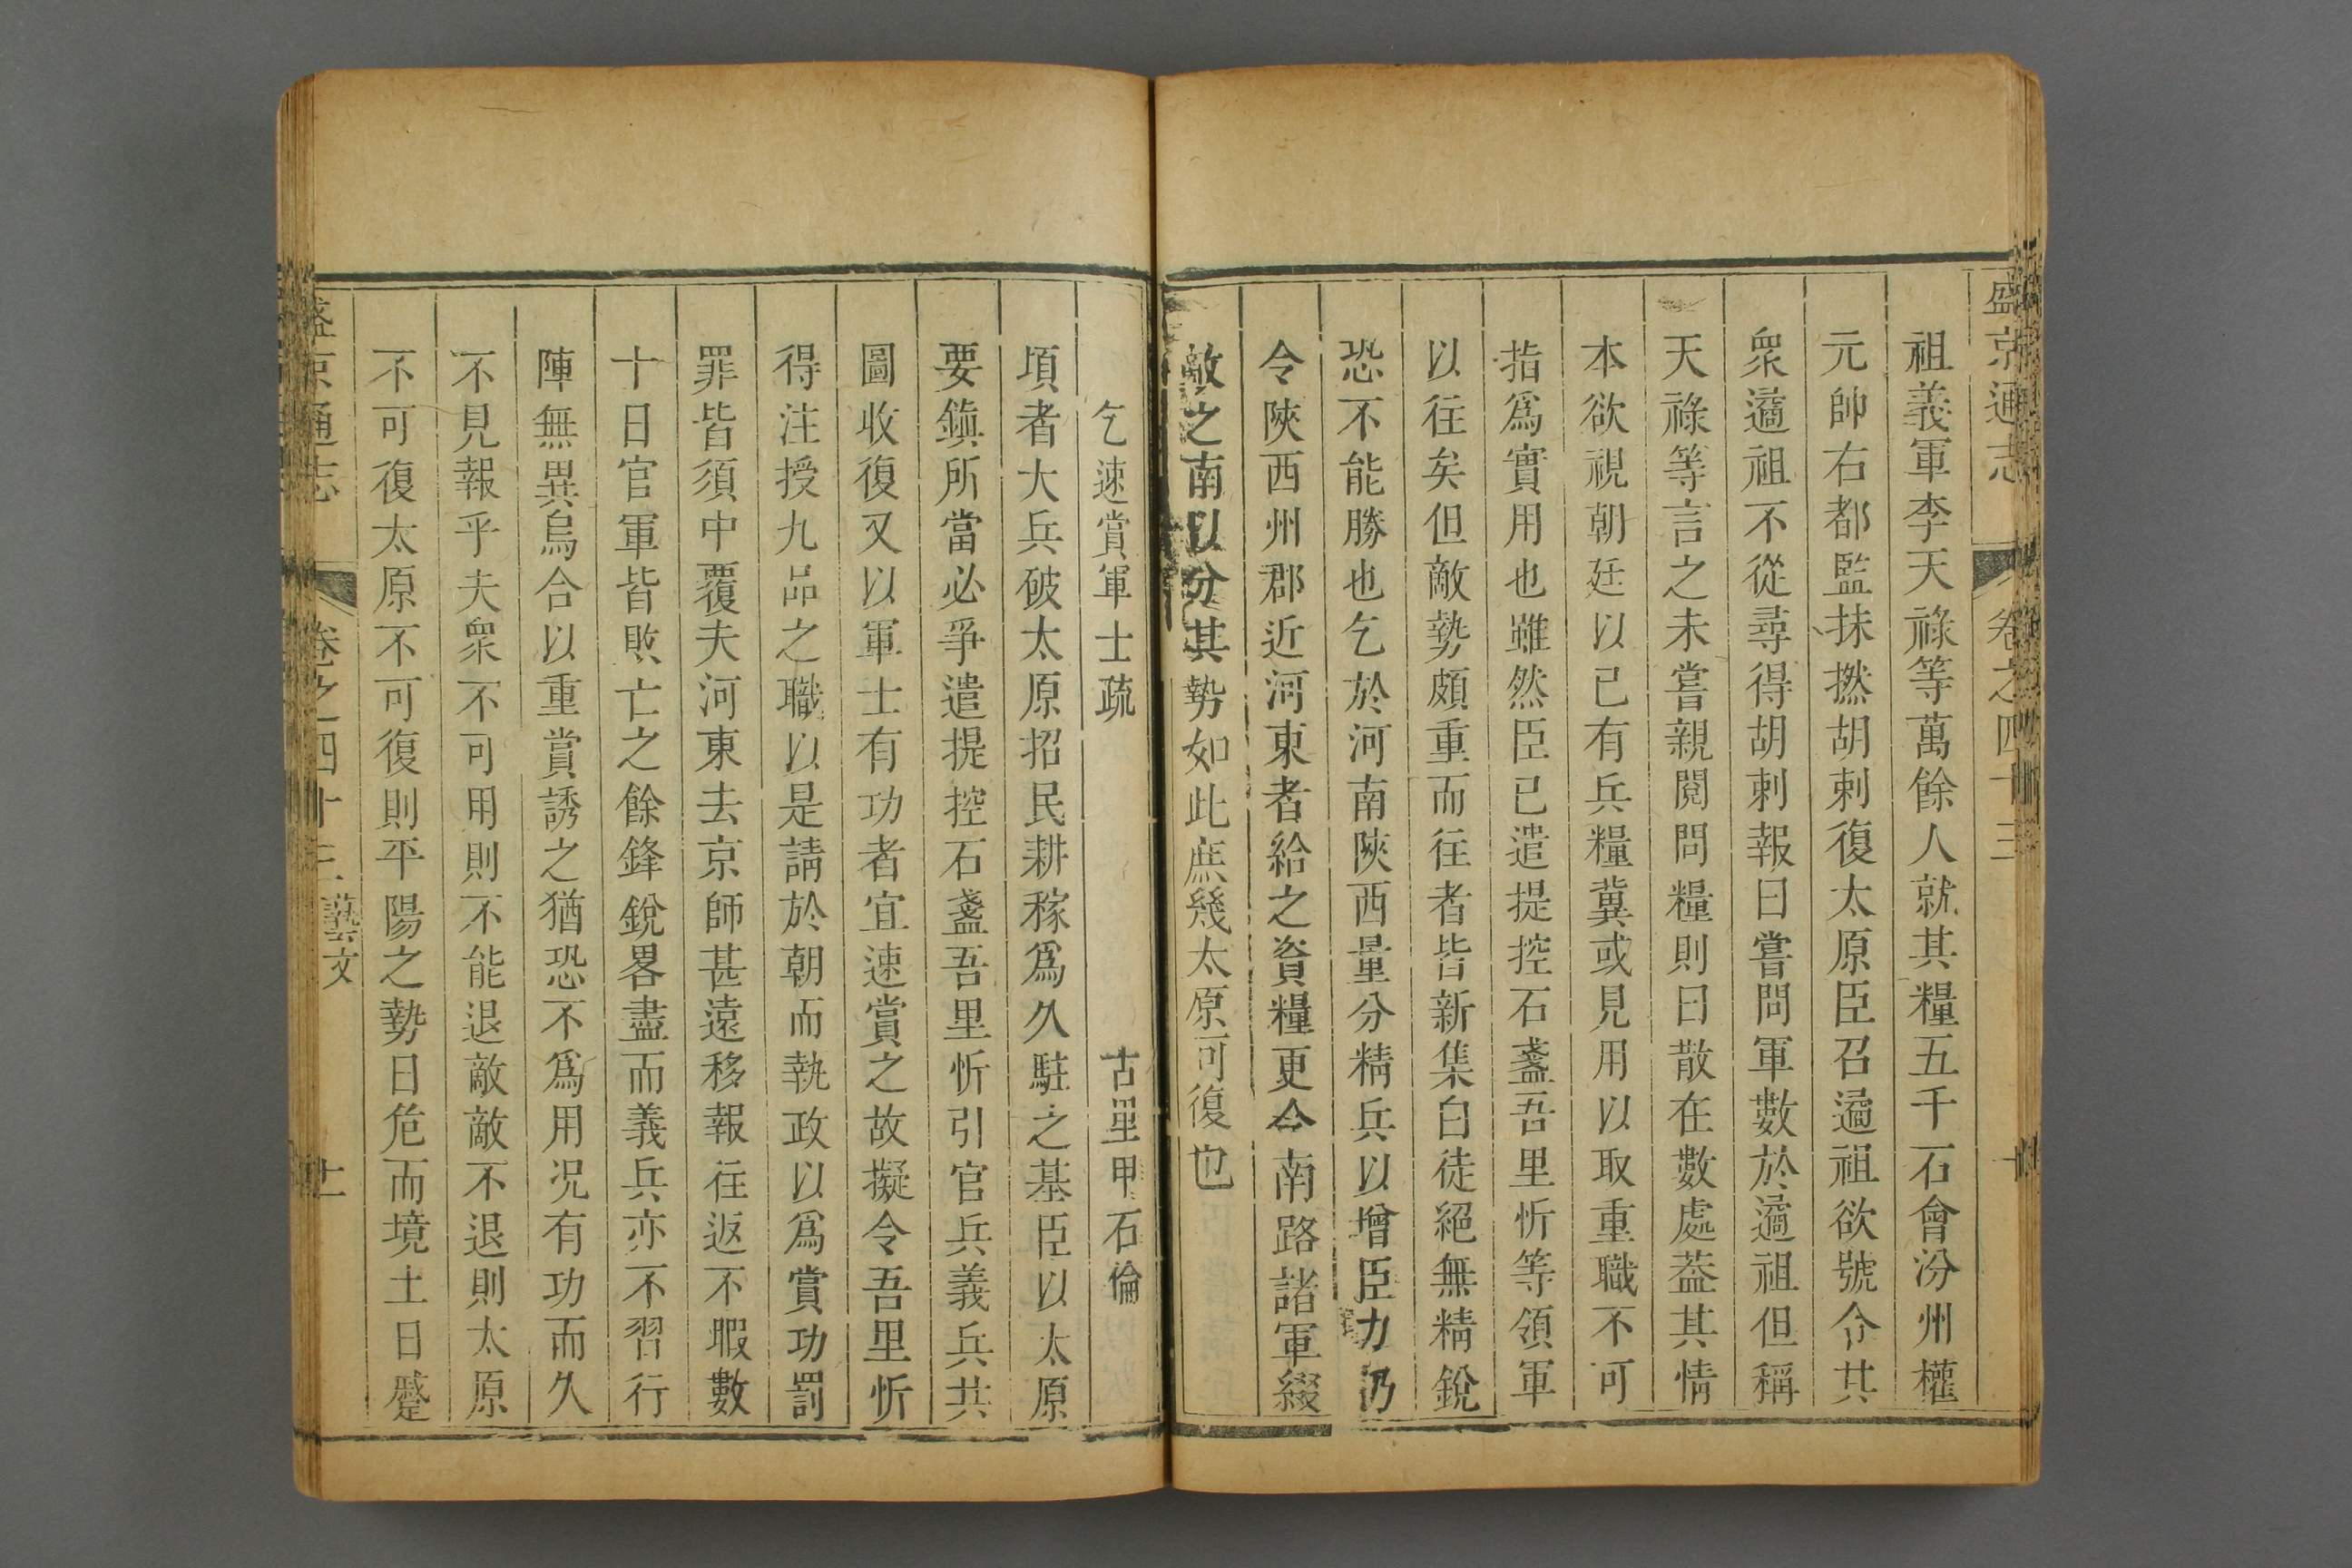 盛京通志 卷之四十三 十
祖義軍李天祿等萬餘人就其糧五千石會汾州權
元帥右都監抹撚胡剌復太原臣召遹祖欲號令其
衆遹祖不從尋得胡剌報曰嘗問軍數於遹祖但稱
天祿等言之未嘗親閱問糧則曰散在數處葢其情
本欲視朝廷以已有兵糧冀或見用以取重職不可
指爲實用也雖然臣已遣提控石盞吾里忻等領軍
以往矣但敵勢頗重而往者皆新集白徒絕無精銳
恐不能勝也乞於河南陝西量分精兵以增臣力乃
令陝西州郡近河東者給之資糧更令南路諸軍綴
敵之南以分其勢如此庶幾太原可復也
乞速賞軍士疏 古里甲石倫
項者大兵破太原招民耕稼爲久駐之基臣以太原
要鎭所當必爭遣提控石盞吾里忻引官兵義兵共
圖收復又以軍士有功者宜速賞之故擬令吾里忻
得注授九品之職以是請於朝而執政以爲賞功罰
罪皆須中覆夫河東去京師甚遠移報往返不暇數
十日官軍皆敗亡之餘鋒銳畧盡而義兵亦不習行
陣無異烏合以重賞誘之猶恐不爲用况有功而久
不見報乎夫衆不可用則不能退敵敵不退則太原
不可復太原不可復則平陽之勢日危而境土日蹙
盛京通志 卷之四十三 藝文 十一